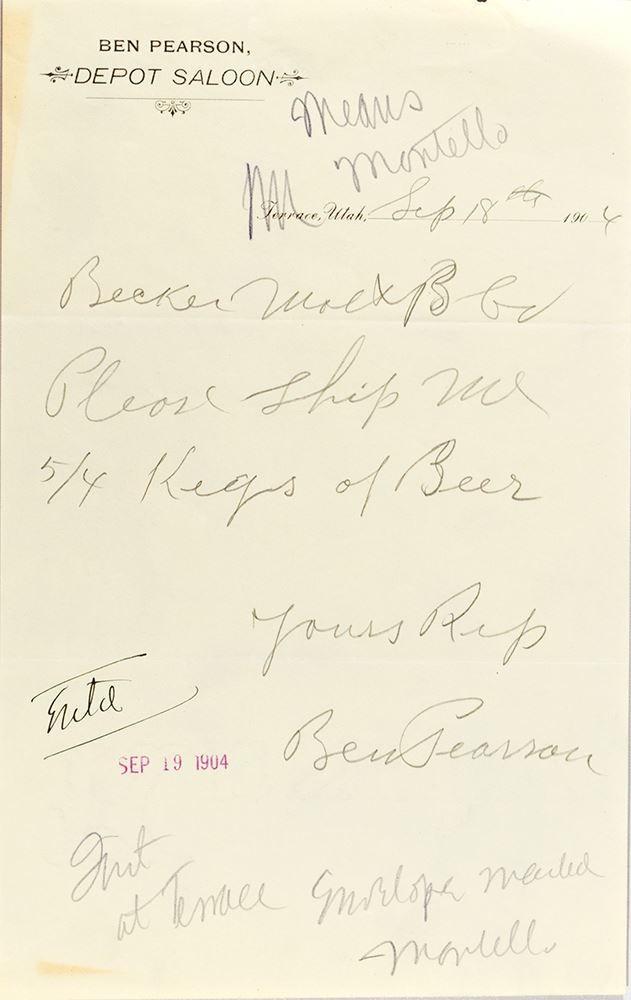 BEN PEARSON,
DEPOT SALOON
Means
Montello
Terrace, Utah, Sep 18th 1904
Becker
Please Ship Me
5/4 Kegs of Beer
Yours Rsp
Ben Pearson
Entd
SEP 19 1904
at Terrace Envelope marked
Montello